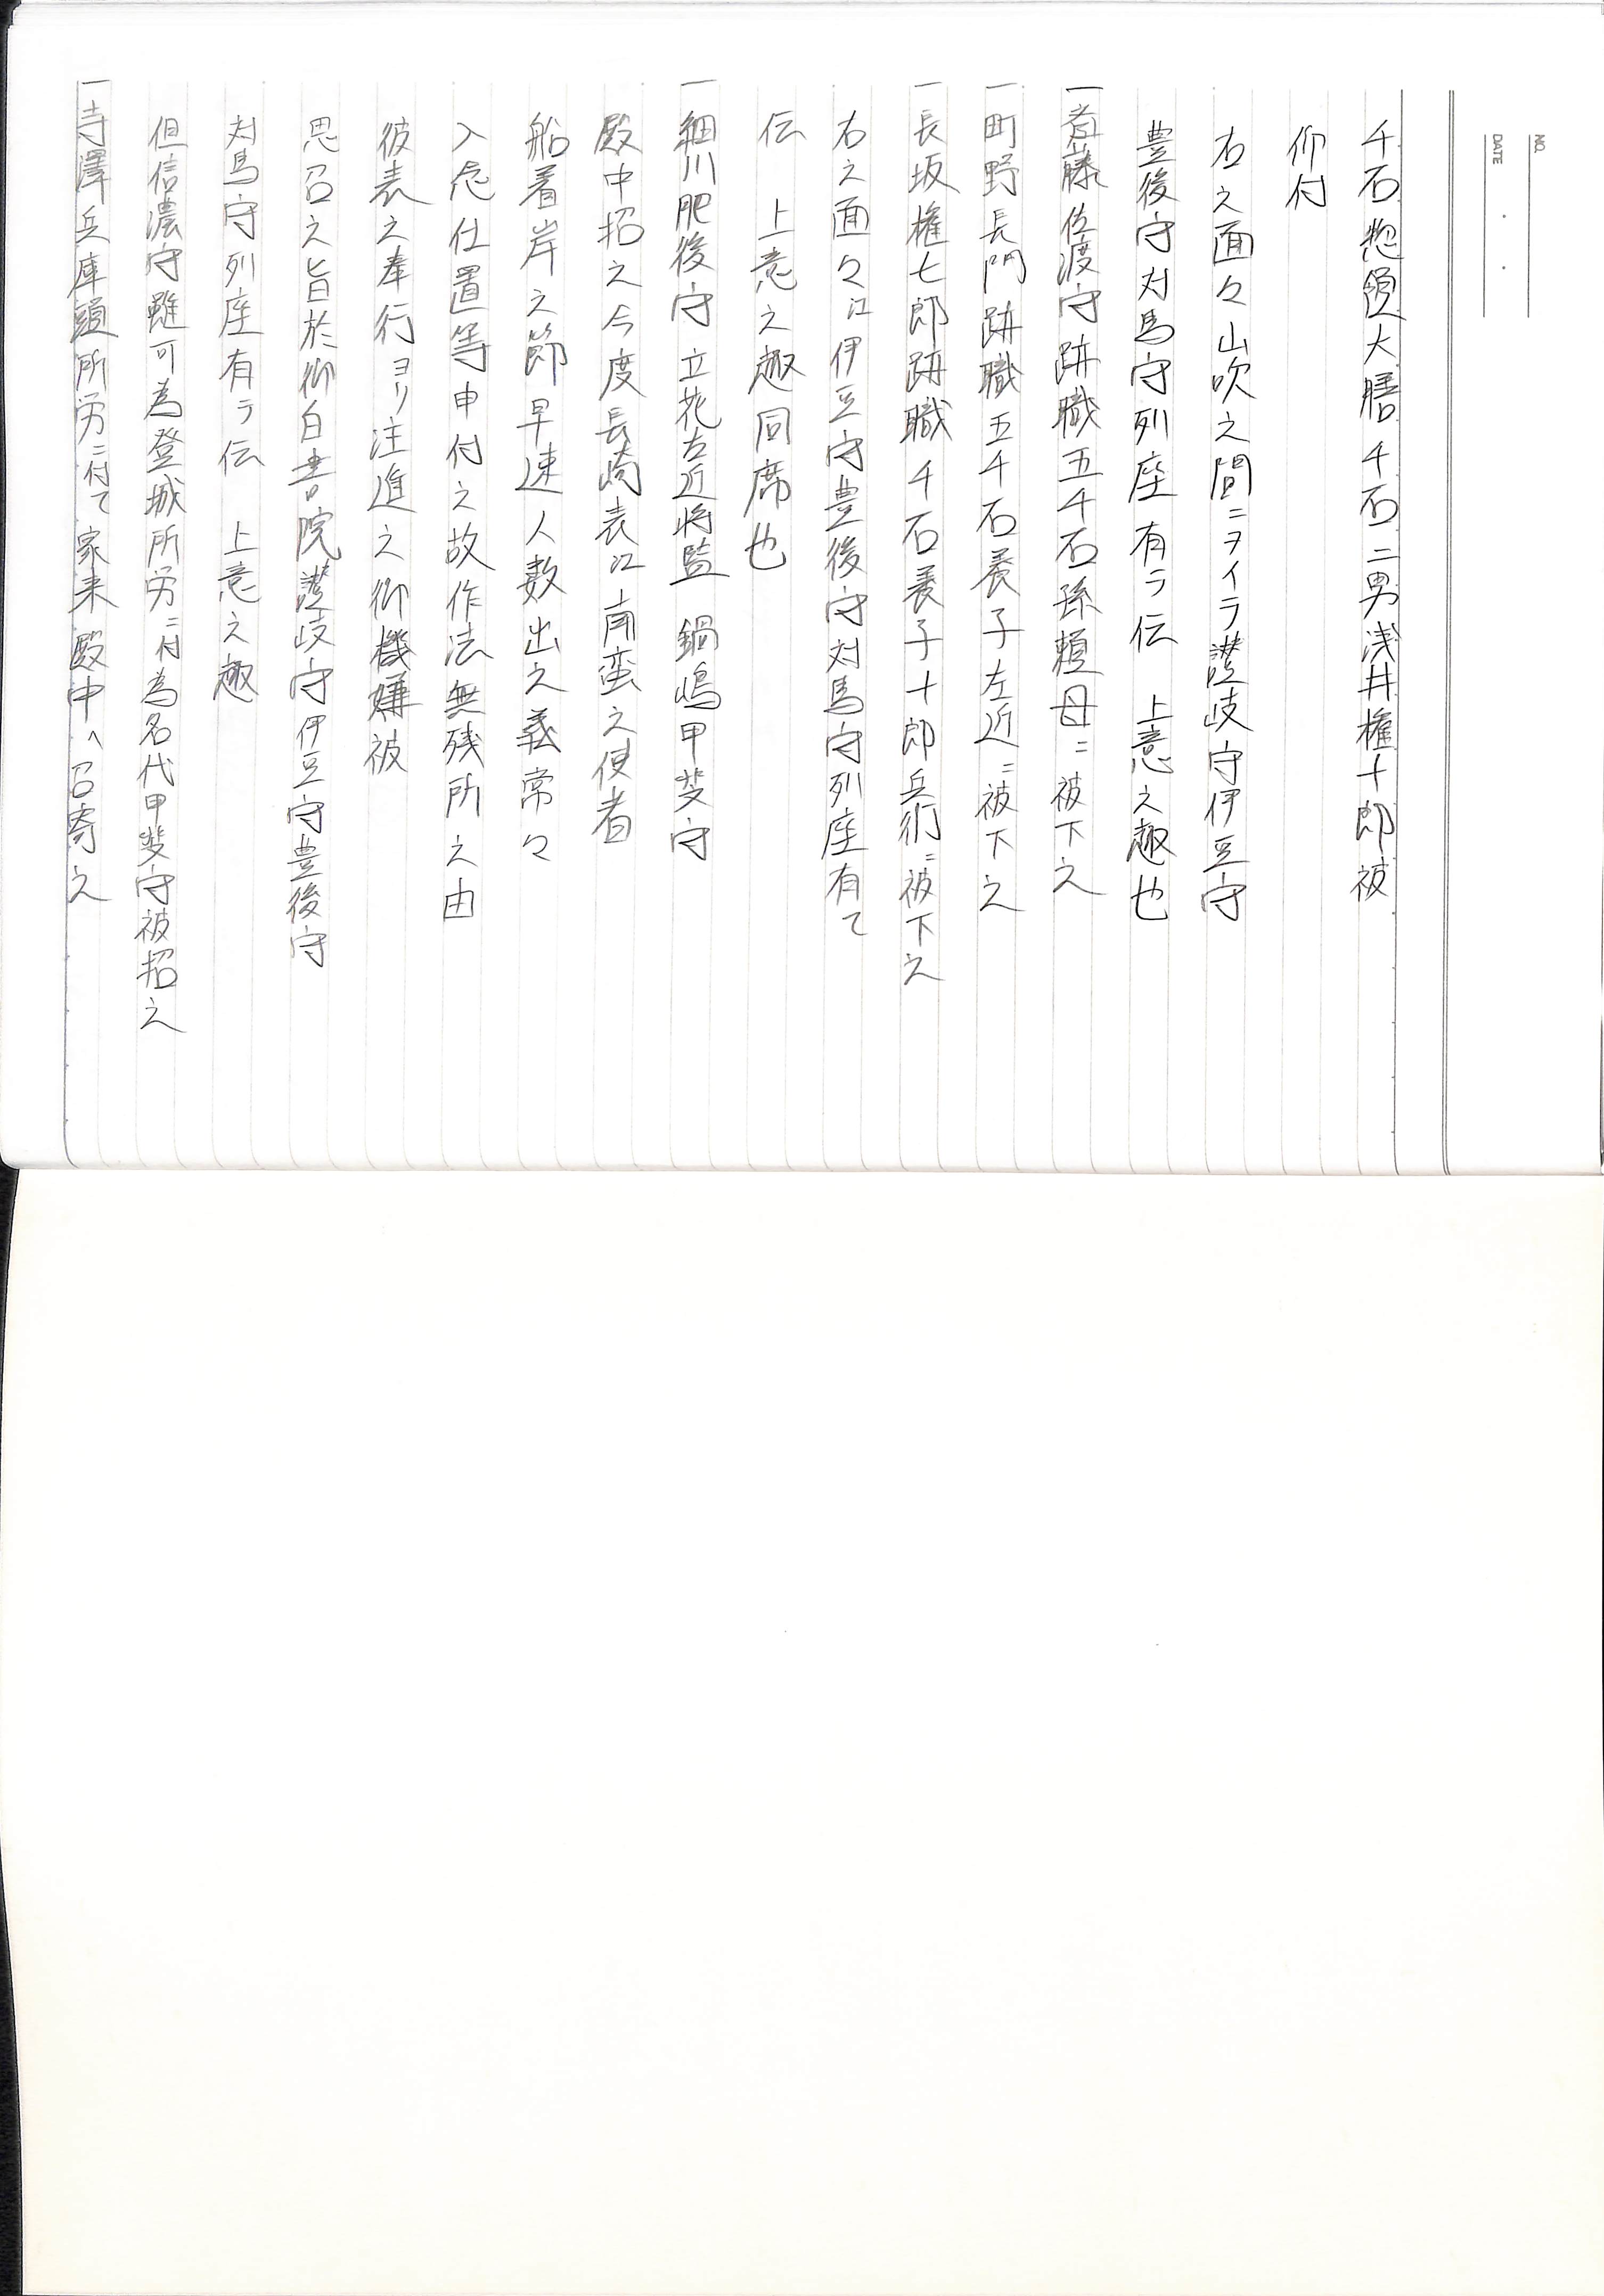 NO.
DATE
千石惣領大膳千石二男浅井権十郎被
仰付
右之面々山吹之間ニヲイテ讃岐守伊豆守
豊後守対馬守列座有テ伝　上意之趣也
一斎藤佐渡守跡職五千石孫頼母ニ被下之
一町野長門跡職五千石養子左近ニ被下之
一長坂権七郎跡職千石養子十郎兵衛ニ被下之
右之面々江伊豆守豊後守対馬守列座有て
伝　上意之趣同席也
一細川肥後守　立花左近将監　鍋嶋甲斐守
殿中招之今度長崎表江南蛮之使者
船着岸之節早速人数出之義常々
入念仕置等申付之故作法無残所之由
彼表之奉行ヨリ注進之御機嫌被
思召之旨於御白書院讃岐守伊豆守豊後守
対馬守列座有テ伝　上意之趣
但信濃守雖可為登城所労ニ付為名代甲斐守被招之
一寺澤兵庫頭所労ニ付て家来殿中へ召寄之